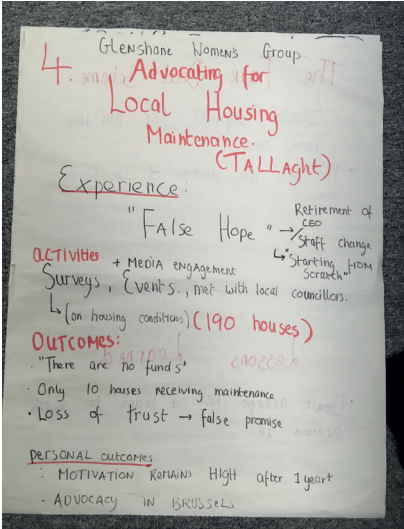 Glenshane Women's Group
4. Advocating for
Local Housing
Maintenance.
(TALLAght)
Experience:
"False Hope" → Retirement of CEO / Staff change
↳ "Starting from Scratch"
ACTIVITIES + MEDIA ENGAGEMENT
Surveys, Events., met with local councillors.
↳ (on housing conditions) (190 houses)
OUTCOMES:
· "There are no funds"
· Only 10 houses receiving maintenance
· Loss of trust → false promise
personal outcomes
· MOTIVATION REMAINS HIGH after 1 year+
· ADVOCACY IN BRUSSELS